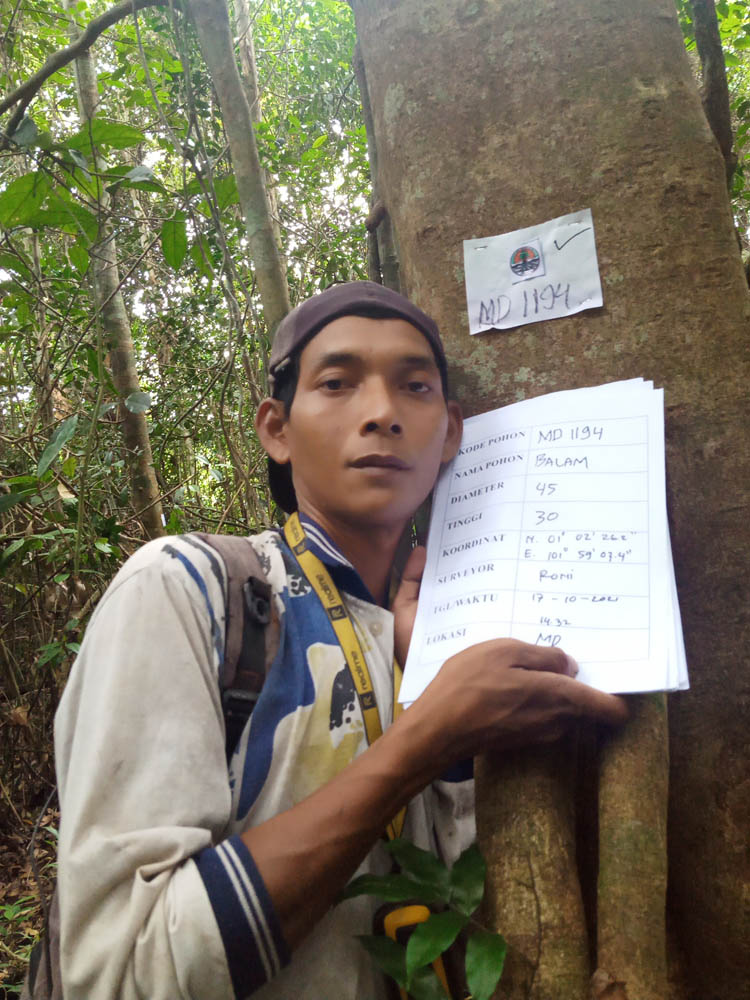 MD 1194
KODE POHON MD 1194
NAMA POHON BALAM
DIAMETER 45
TINGGI 30
KOORDINAT N. 01° 02' 26.2"
E. 101° 59' 07.4"
SURVEYOR Romi
TGL/WAKTU 17-10-2021
14.32
LOKASI MD
realme
realme